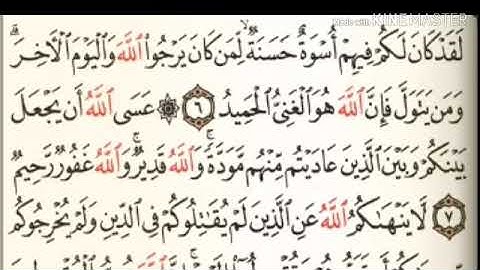 Made with KINEMASTER
لَقَدْ كَانَ لَكُمْ فِيهِمْ أُسْوَةٌ حَسَنَةٌ لِّمَن كَانَ يَرْجُوا۟ ٱللَّهَ وَٱلْيَوْمَ ٱلْـَٔاخِرَ ۚ
وَمَن يَتَوَلَّ فَإِنَّ ٱللَّهَ هُوَ ٱلْغَنِىُّ ٱلْحَمِيدُ ٦ ۞ عَسَى ٱللَّهُ أَن يَجْعَلَ
بَيْنَكُمْ وَبَيْنَ ٱلَّذِينَ عَادَيْتُم مِّنْهُم مَّوَدَّةً ۚ وَٱللَّهُ قَدِيرٌ ۚ وَٱللَّهُ غَفُورٌ رَّحِيمٌ
٧ لَّا يَنْهَىٰكُمُ ٱللَّهُ عَنِ ٱلَّذِينَ لَمْ يُقَـٰتِلُوكُمْ فِى ٱلدِّينِ وَلَمْ يُخْرِجُوكُم